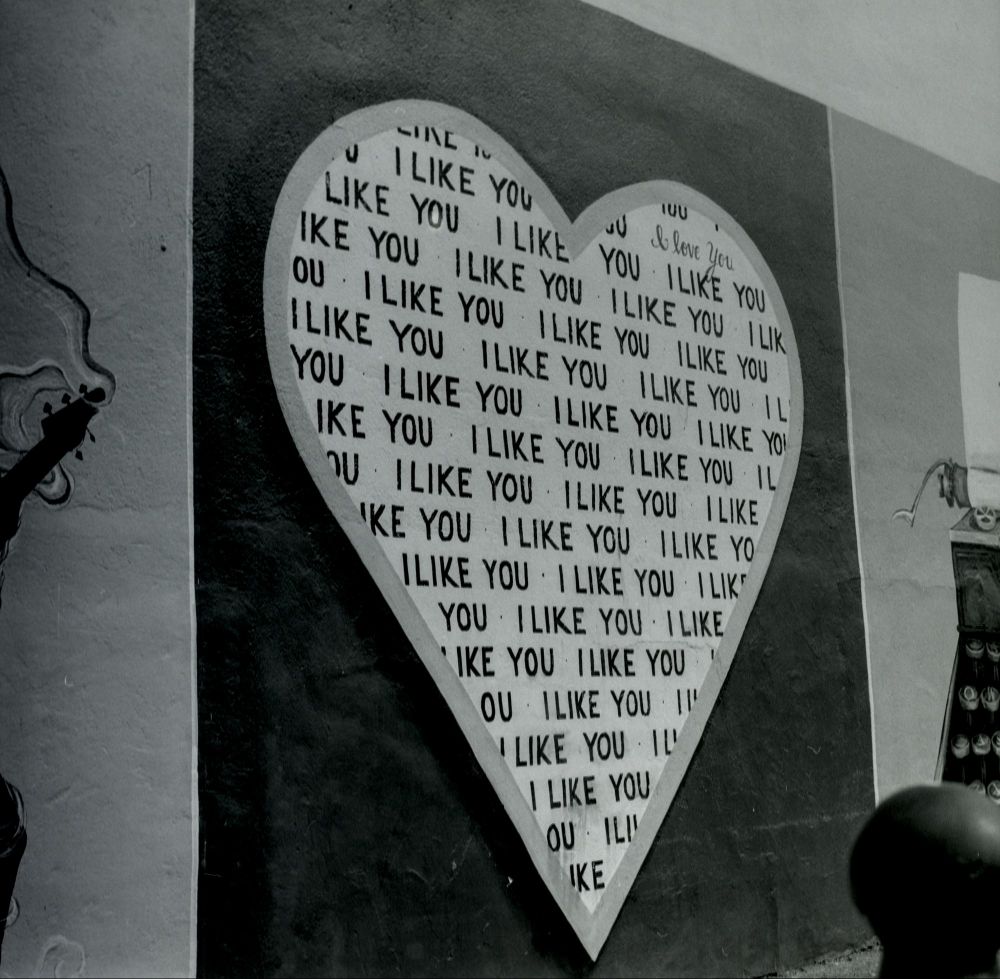 LIKE
U I LIKE YOU
LIKE YOU I LIKE
YOU
I love You
IKE YOU · I LIKE YOU · YOU · I LIKE YOU
OU · I LIKE YOU · I LIKE YOU · I LIK
I LIKE YOU · I LIKE YOU · I LIKE YOU
YOU · I LIKE YOU · I LIKE YOU · I L
IKE YOU · I LIKE YOU · I LIKE YOU
OU · I LIKE YOU · I LIKE YOU · I L
IKE YOU · I LIKE YOU · I LIKE
I LIKE YOU · I LIKE YOU · I LIKE YO
YOU · I LIKE YOU · I LIKE
IKE YOU · I LIKE YOU
OU · I LIKE YOU
I LIKE YOU
I LIKE YOU
OU
IKE